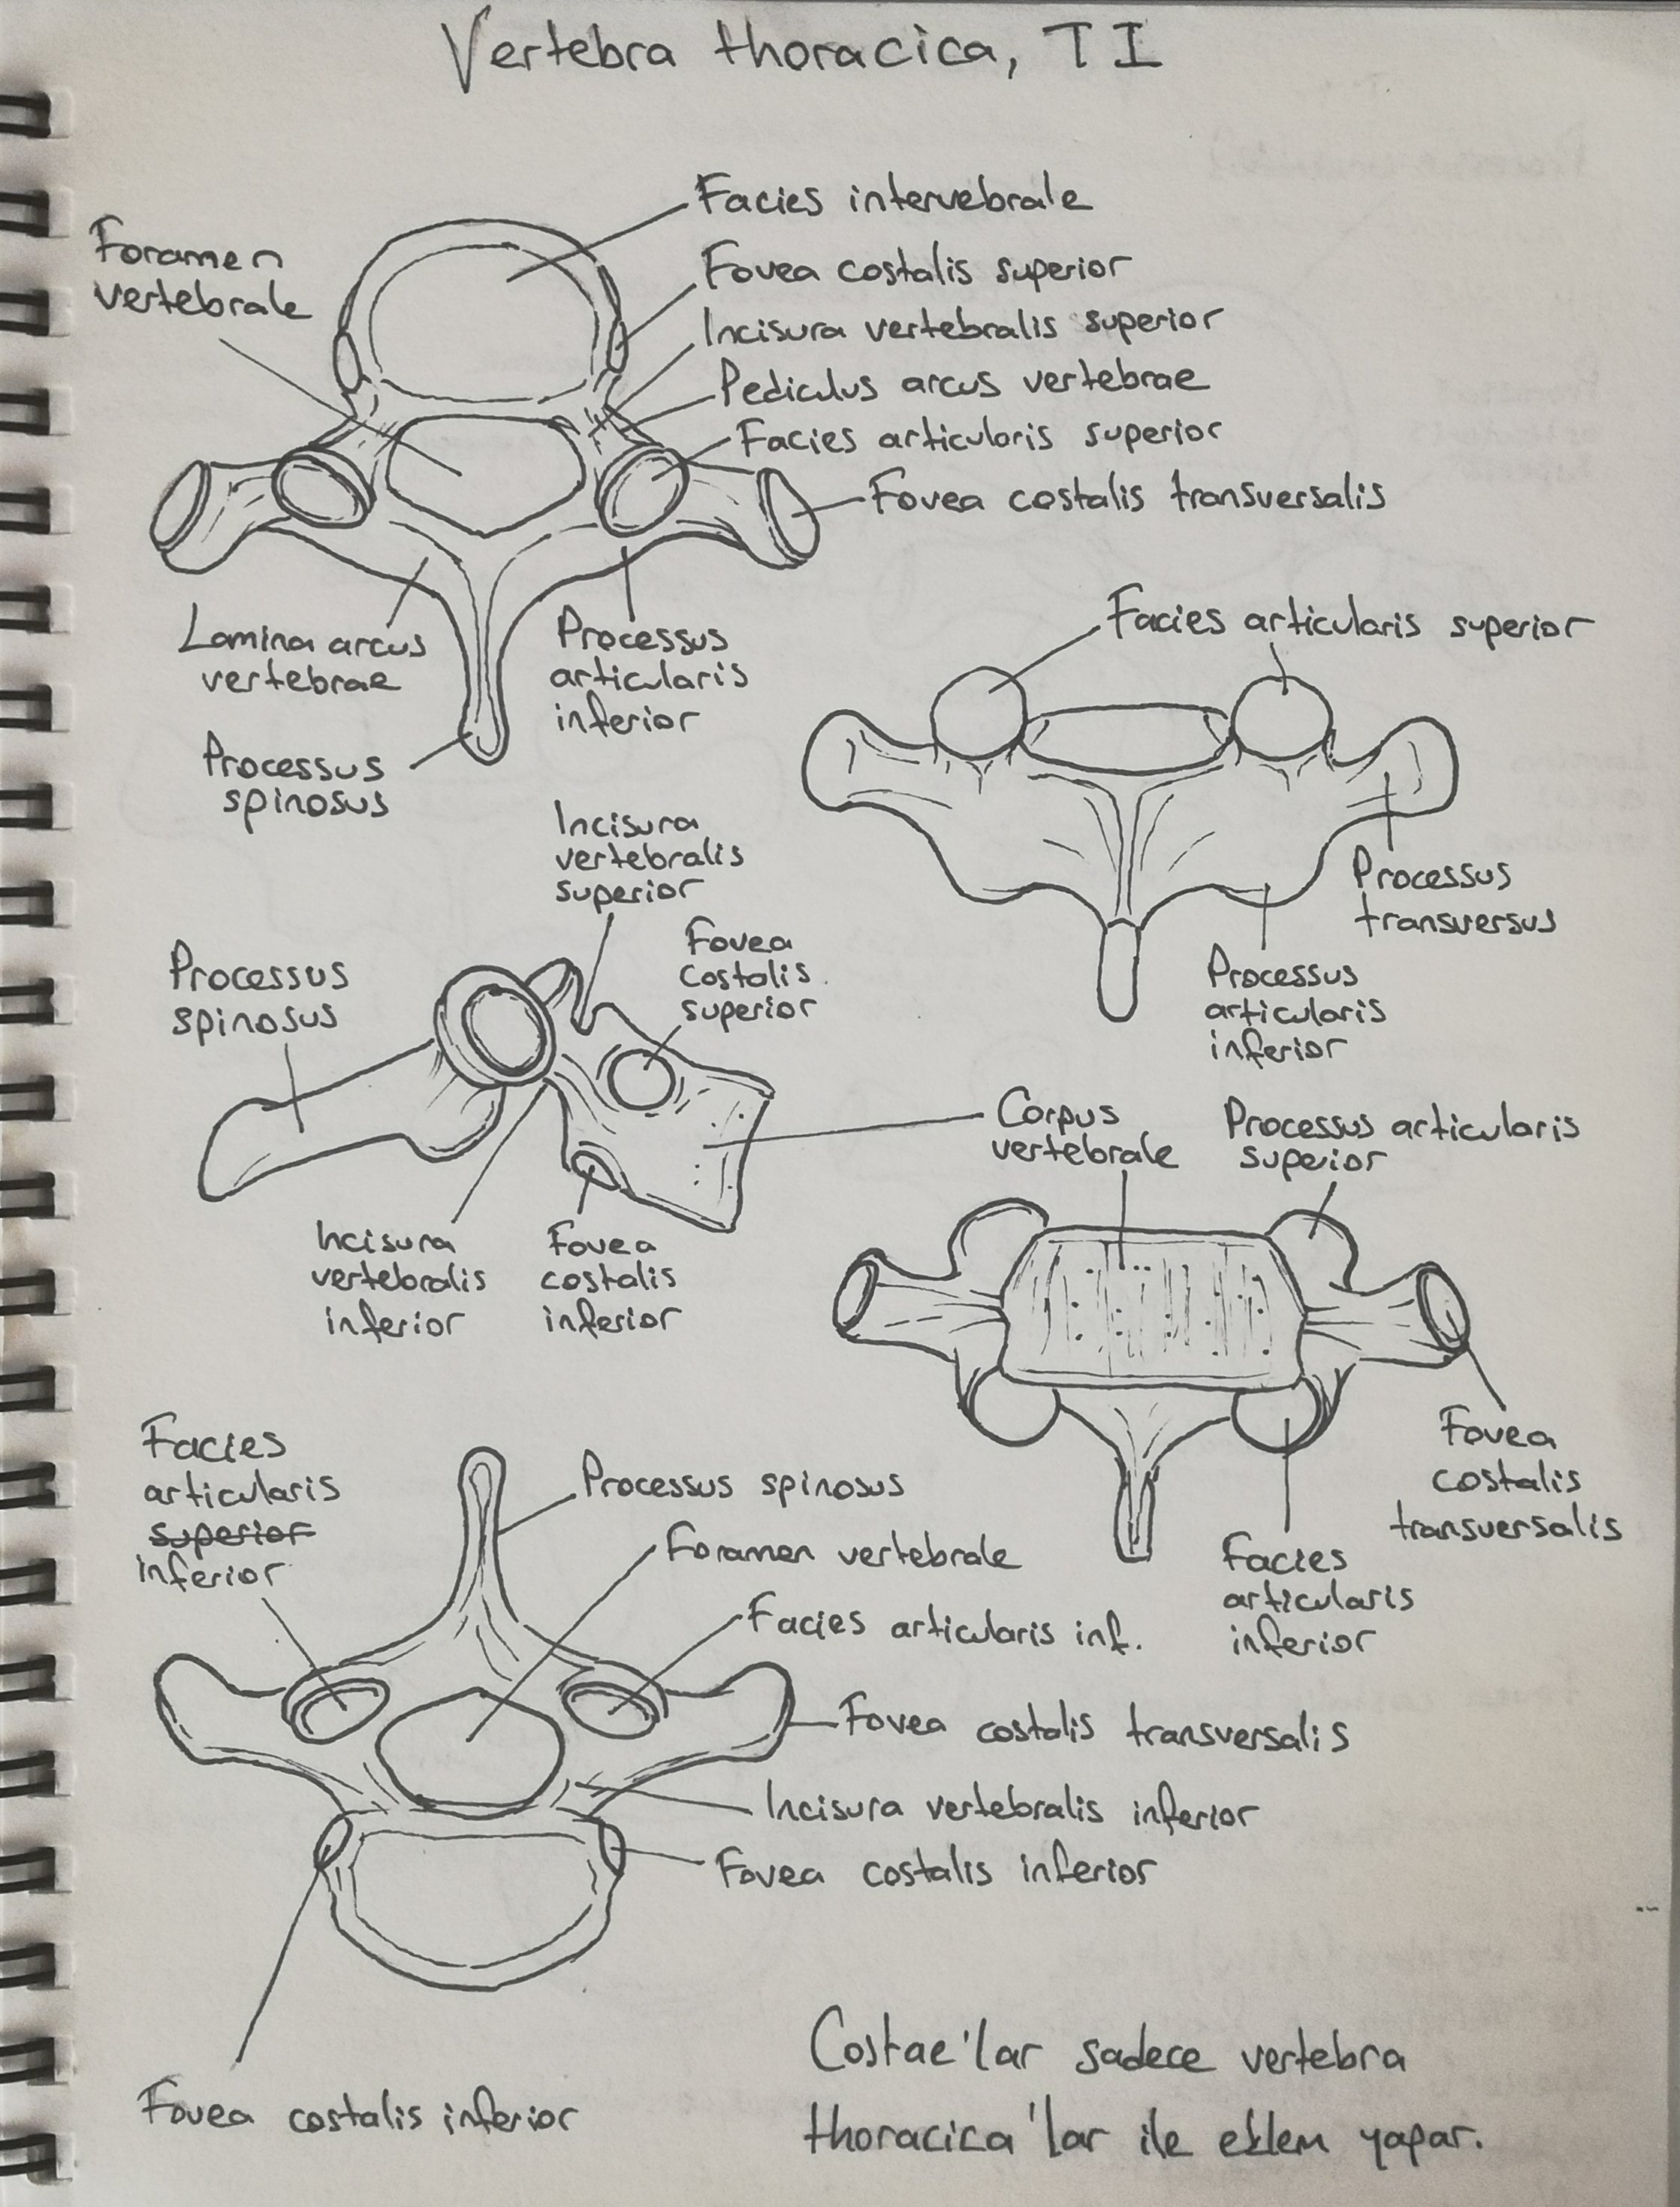 Vertebra thoracica, T I
Foramen
vertebrale
Facies intervebrale
Fovea costalis superior
Incisura vertebralis superior
Pediculus arcus vertebrae
Facies articularis superior
Fovea costalis transversalis
Lamina arcus
vertebrae
Processus
articularis
inferior
Processus
spinosus
Facies articularis superior
Processus
transversus
Processus
articularis
inferior
Incisura
vertebralis
superior
Fovea
costalis
superior
Processus
spinosus
Corpus
vertebrale
Incisura
vertebralis
inferior
Fovea
costalis
inferior
Processus articularis
superior
Fovea
costalis
transversalis
Facies
articularis
inferior
Facies
articularis
superior
inferior
Processus spinosus
Foramen vertebrale
Facies articularis inf.
Fovea costalis transversalis
Incisura vertebralis inferior
Fovea costalis inferior
Fovea costalis inferior
Costae'lar sadece vertebra
thoracica'lar ile eklem yapar.